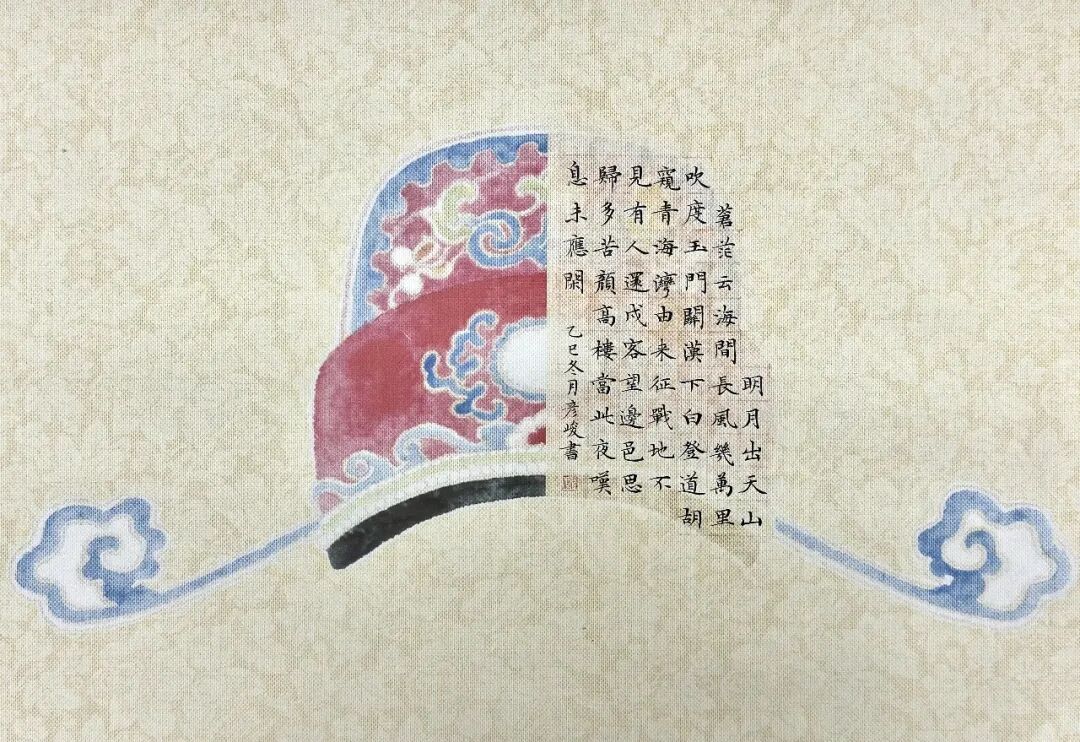 明月出天山
蒼茫云海間長風幾萬里
吹度玉門關漢下白登道胡
窺青海灣由来征戰地不
見有人還戍客望邊邑思
歸多苦顏高樓當此夜嘆
息未應閑
乙巳冬月彦峻書